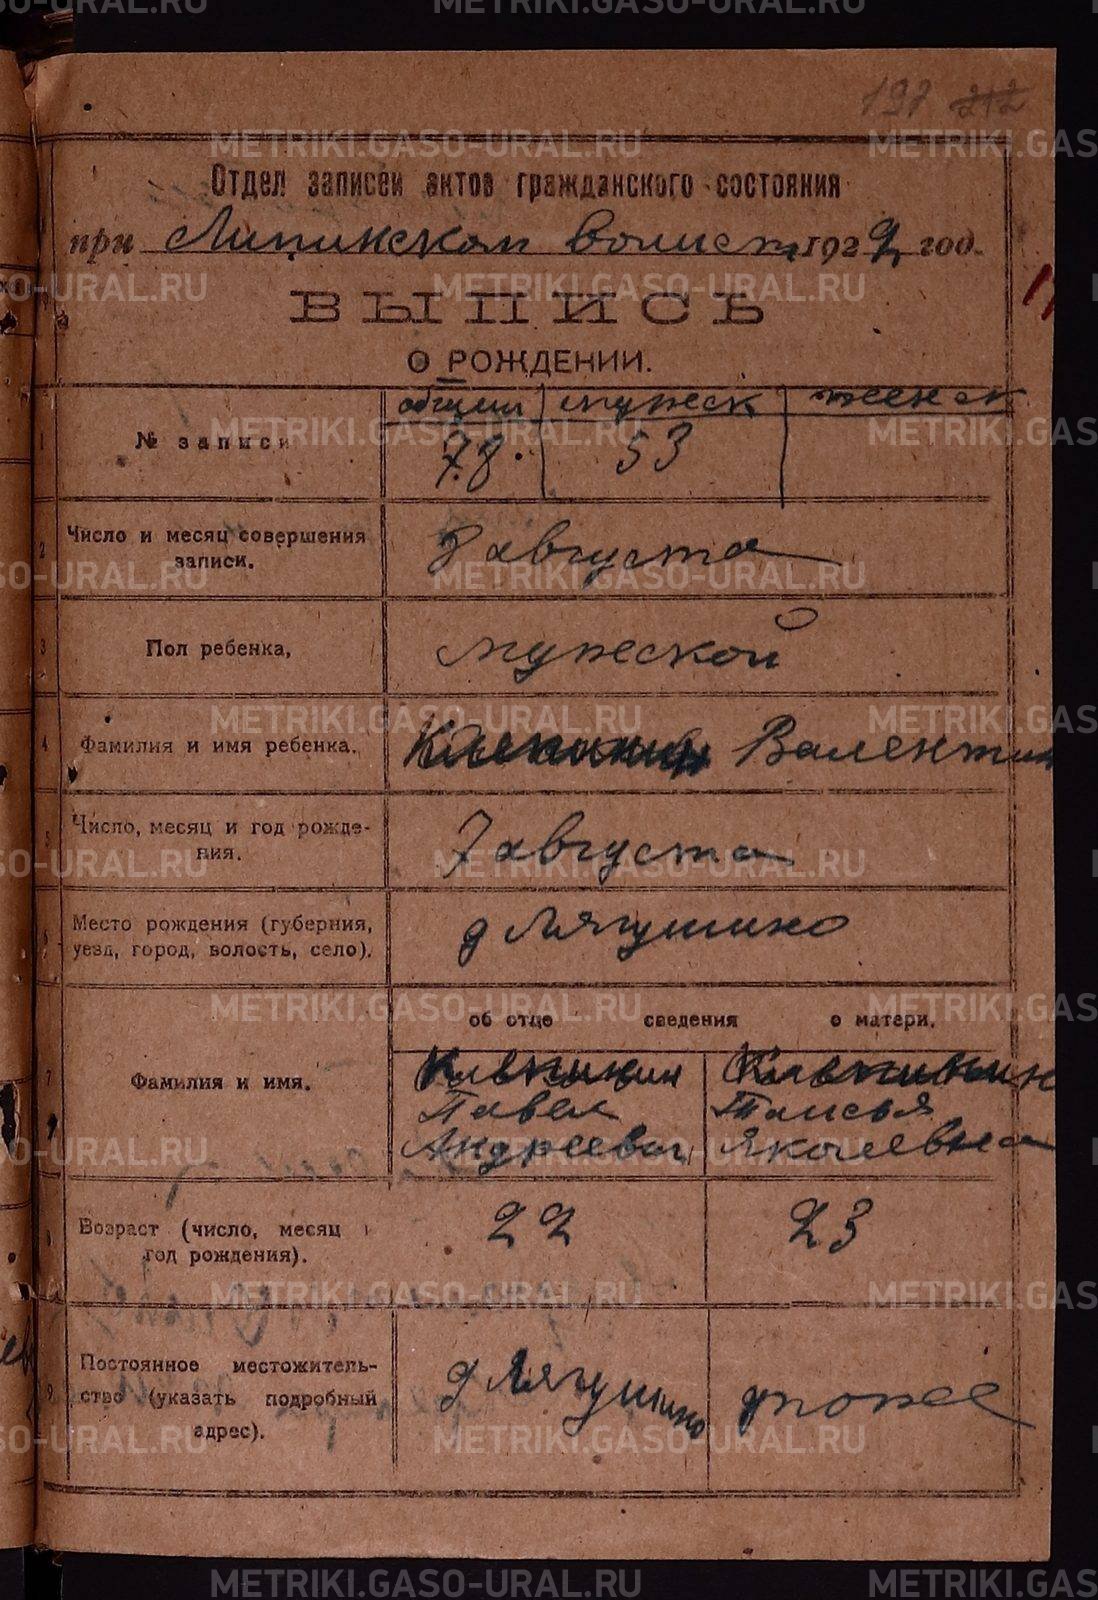 METRIKI.GASO-URAL.RU
197 212
Отдел записей актов гражданского состояния
при Липинском волисп. 1922 год.
ВЫПИСЬ
О РОЖДЕНИИ.
общий мужеск женск
1 № записи 78. 53
2 Число и месяц совершения записи. 8 августа
3 Пол ребенка, мужеской
4 Фамилия и имя ребенка. Валентин
5 Число, месяц и год рожде-
ния. 7 августа
6 Место рождения (губерния,
уезд, город, волость, село). д Лягушино
об отце сведения о матери.
7 Фамилия и имя.
Павел Таисья
Андреевич Яковлевна
8 Возраст (число, месяц и
год рождения). 22 23
9 Постоянное местожитель-
ство (указать подробный
адрес). д Лягушино тоже